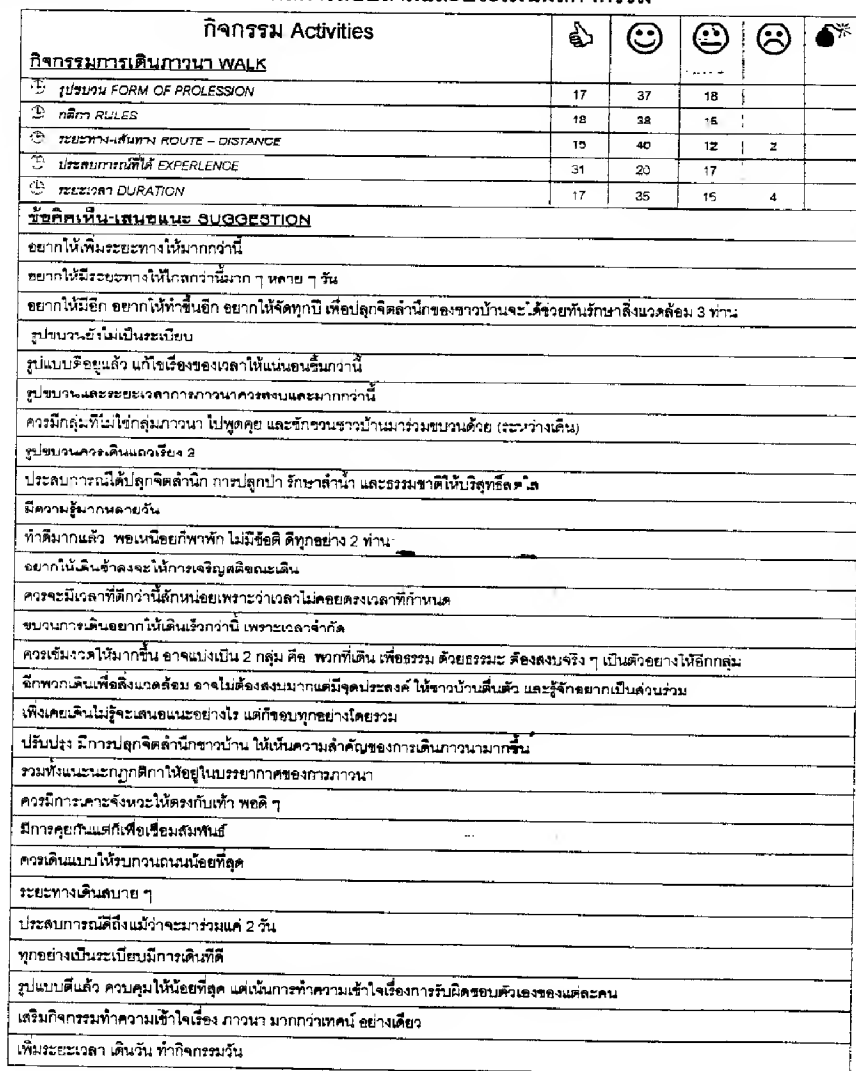 กิจกรรม Activities
กิจกรรมการเดินภาวนา WALK
รูปขบวน FORM OF PROLESSION 17 37 18
กติกา RULES 18 38 15
ระยะทาง-เส้นทาง ROUTE – DISTANCE 15 40 12 2
ประสบการณ์ที่ได้ EXPERLENCE 31 20 17
ระยะเวลา DURATION 17 35 15 4
ข้อคิดเห็น-เสนอแนะ SUGGESTION
อยากให้เพิ่มระยะทางให้มากกว่านี้
อยากให้มีระยะทางให้ไกลกว่านี้มาก ๆ หลาย ๆ วัน
อยากให้มีอีก อยากให้ทำขึ้นอีก อยากให้จัดทุกปี เพื่อปลุกจิตสำนึกของชาวบ้านจะได้ช่วยกันรักษาสิ่งแวดล้อม 3 ท่าน
รูปขบวนยังไม่เป็นระเบียบ
รูปแบบดีอยู่แล้ว แก้ไขเรื่องของเวลาให้แน่นอนขึ้นกว่านี้
รูปขบวนและระยะเวลาการภาวนาควรสงบและมากกว่านี้
ควรมีกลุ่มที่ไม่ใช่กลุ่มภาวนา ไปพูดคุย และชักชวนชาวบ้านมาร่วมขบวนด้วย (ระหว่างเดิน)
รูปขบวนควรเดินแถวเรียง 2
ประสบการณ์ได้ปลุกจิตสำนึก การปลูกป่า รักษาลำน้ำ และธรรมชาติให้บริสุทธิ์สดใส
มีความรู้มากหลายวัน
ทำดีมากแล้ว พอเหนื่อยก็พาพัก ไม่มีข้อติ ดีทุกอย่าง 2 ท่าน
อยากให้เดินช้าลงจะให้การเจริญสติขณะเดิน
ควรจะมีเวลาที่ดีกว่านี้สักหน่อยเพราะว่าเวลาไม่ค่อยตรงเวลาที่กำหนด
ขบวนการเดินอยากให้เดินเร็วกว่านี้ เพราะเวลาจำกัด
ควรเข้มงวดให้มากขึ้น อาจแบ่งเป็น 2 กลุ่ม คือ พวกที่เดิน เพื่อธรรม ด้วยธรรมะ ต้องสงบจริง ๆ เป็นตัวอย่างให้อีกกลุ่ม
อีกพวกเดินเพื่อสิ่งแวดล้อม อาจไม่ต้องสงบมากแต่มีจุดประสงค์ ให้ชาวบ้านตื่นตัว และรู้จักอยากเป็นส่วนร่วม
เพิ่งเคยเดินไม่รู้จะเสนอแนะอย่างไร แต่ก็ชอบทุกอย่างโดยรวม
ปรับปรุง มีการปลุกจิตสำนึกชาวบ้าน ให้เห็นความสำคัญของการเดินภาวนามากขึ้น
รวมทั้งแนะนะกฎกติกาให้อยู่ในบรรยากาศของการภาวนา
ควรมีการเคาะจังหวะให้ตรงกับเท้า พอดี ๆ
มีการคุยกันแต่ก็เพื่อเชื่อมสัมพันธ์
ควรเดินแบบให้รบกวนถนนน้อยที่สุด
ระยะทางเดินสบาย ๆ
ประสบการณ์ดีถึงแม้ว่าจะมาร่วมแค่ 2 วัน
ทุกอย่างเป็นระเบียบมีการเดินที่ดี
รูปแบบดีแล้ว ควบคุมให้น้อยที่สุด แต่เน้นการทำความเข้าใจเรื่องการรับผิดชอบตัวเองของแต่ละคน
เสริมกิจกรรมทำความเข้าใจเรื่อง ภาวนา มากกว่าเทศน์ อย่างเดียว
เพิ่มระยะเวลา เดินวัน ทำกิจกรรมวัน